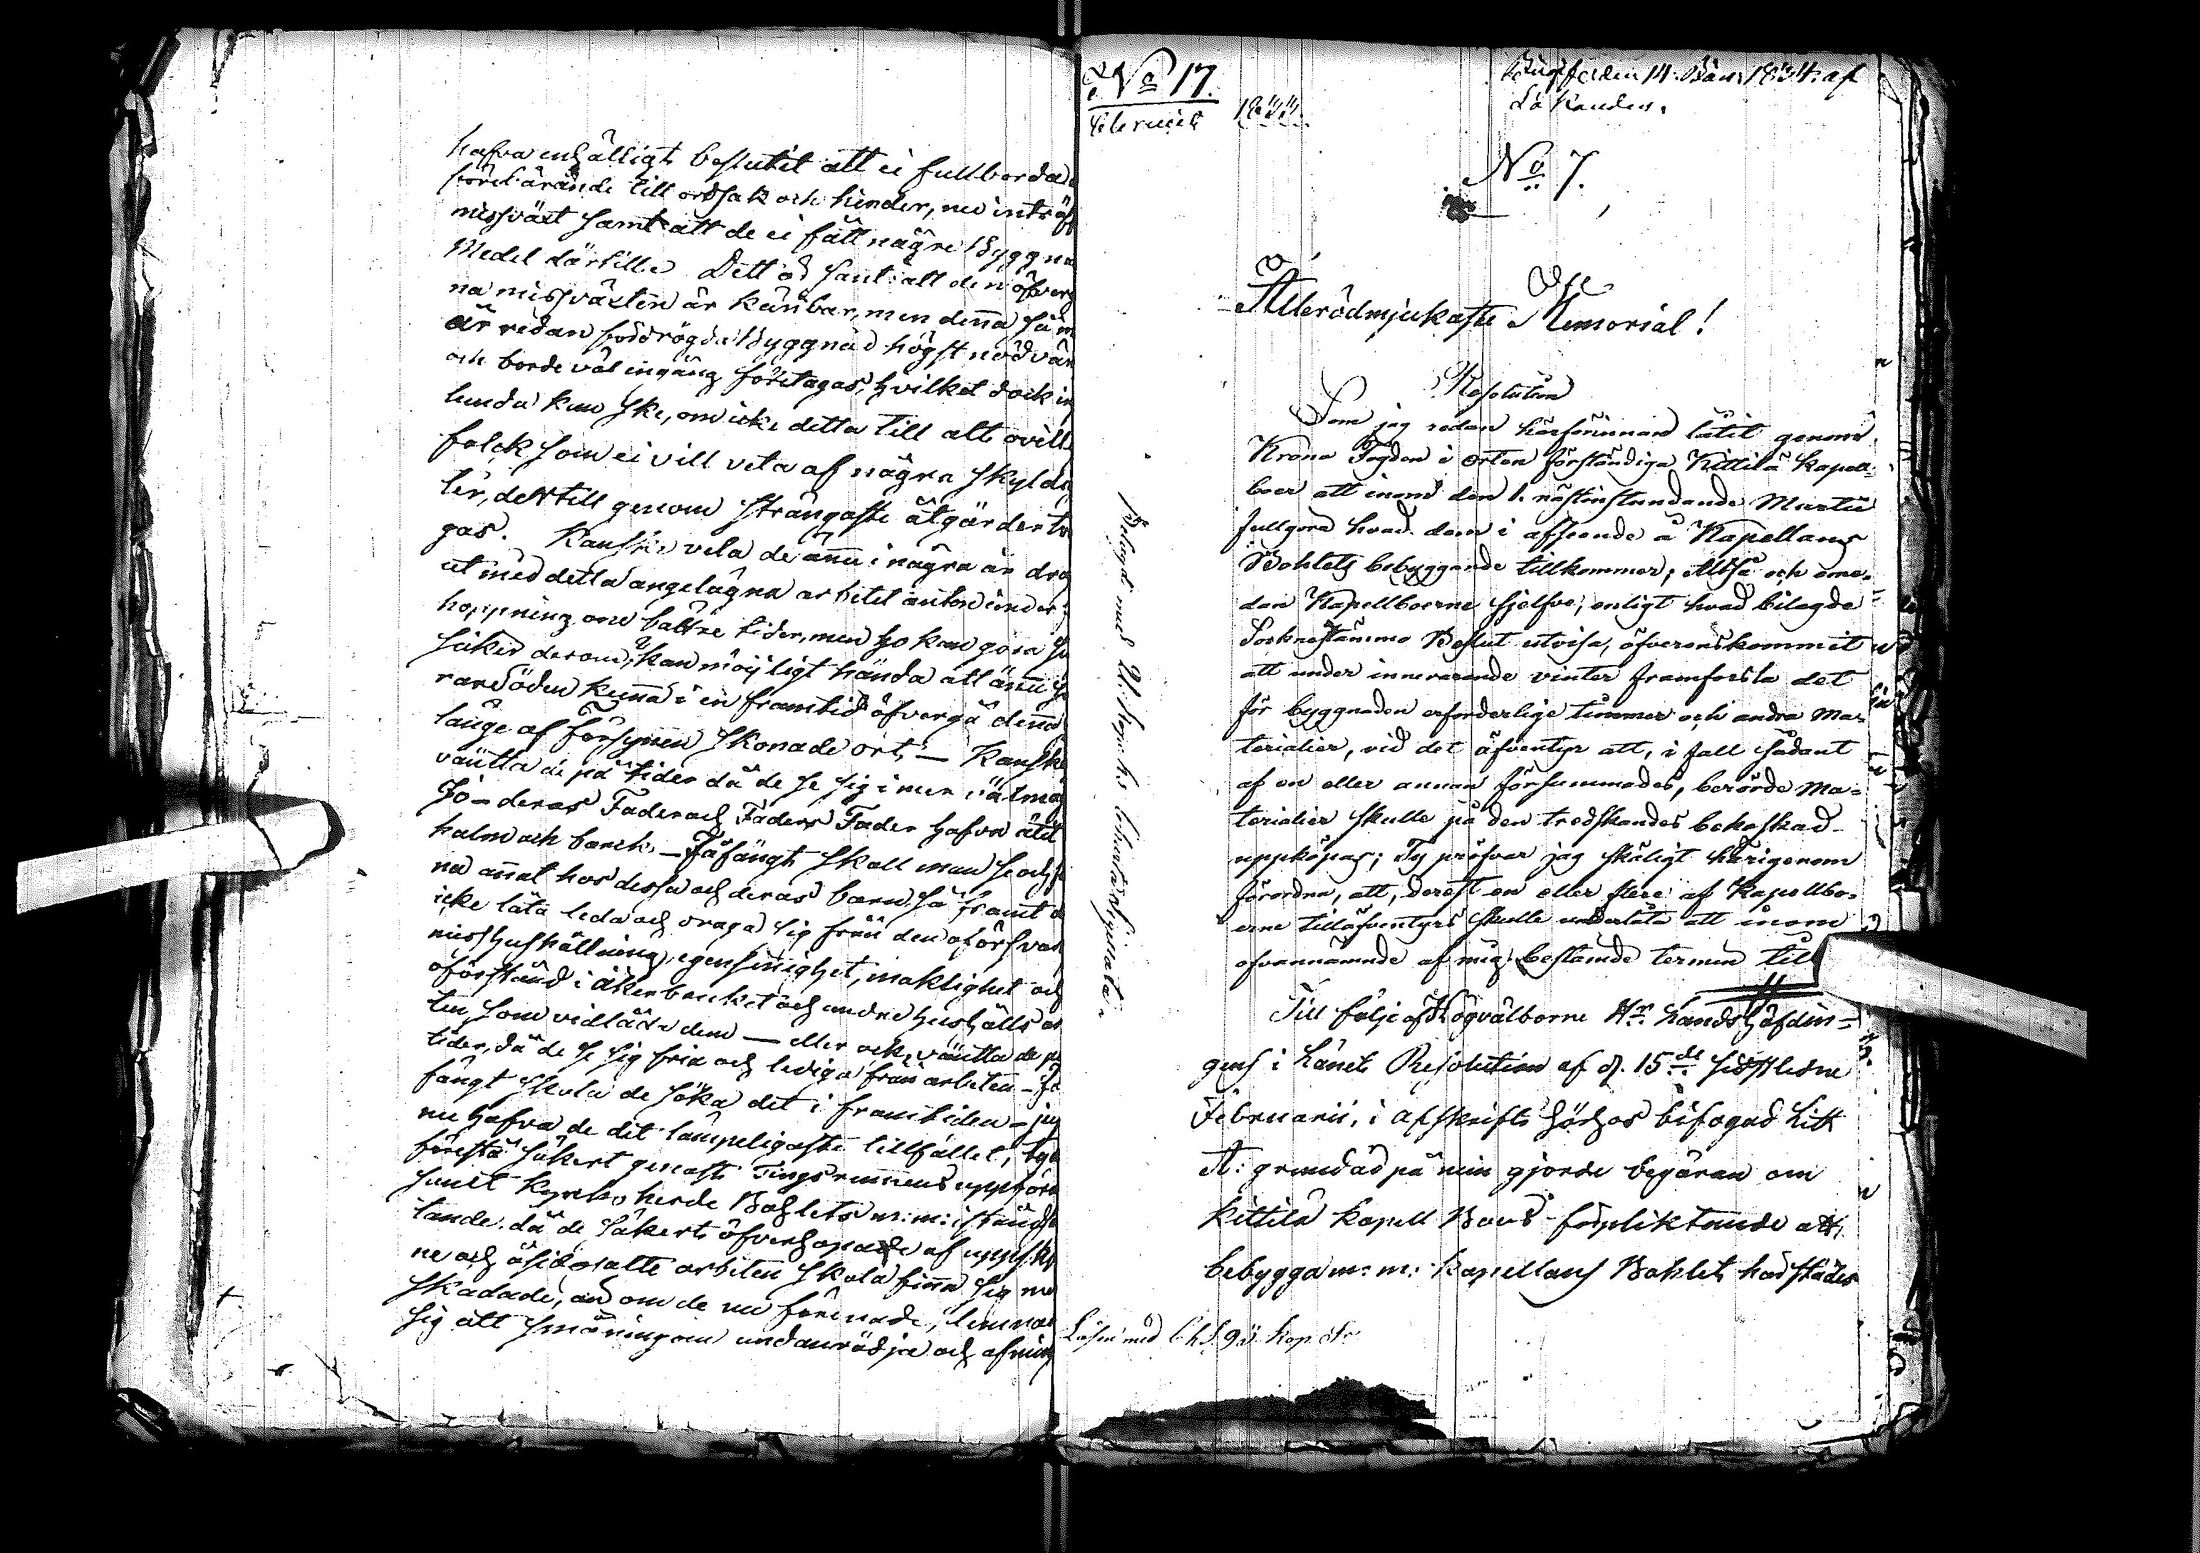 hafva enhälligt beslutit att ei fullborda
förebärande till orsak och hinder, nu inträf
missväxt samt att de ei fått någre Byggna
Medel därtill. Dett är sant att den öfver
na missväxten är känbar, men denna så m
är redan fördrögda Byggnad högst nödvän
och borde väl ingång företagas, hvilket dock in
lunda kan ske, om icke detta till alt ovill
folck som ei vill veta af några skyldi
ter, dertill genom strängaste åtgärder tv
gas. Kanske vela de ännu i några år dra
ut med detta angelägna arbetet under
hoppning om bättre tider, men ho kan göra si
säker derom, kan möjligt hända att ännu
rare öden kunna i en framtid öfvergå denna
länge af Försynen skonade ort, — Kanske
väntta de på tider då de se sig i mer välmå
jo – deras Fader och Faders Fader hafva ätit
halm och barck, – Fåfängt skall man se och
na annat hos dessa och deras barn, så framt
icke låta leda och draga sig från den oförsvar
misshushållning, egensinnighet, maklighet och
oförstånd i åkerbrucket och andre hushålls
ten som vidlåda dem — eller ock väntta de på
tider, då de se sig fria och lediga från arbeten – få
fängt skola de söka det i framtiden –
nu hafva de det lämpeligaste tillfället,
förestå säkert genast Tingsrummens uppföra
samt Kyrkoherde Bohlets m: m: iståndsä
tande. då de säkert öfverhopade af uppsku
ne och åsidosatte arbeten skola finna sig me
skadade, än om de nu förenade,
sig att småningom undanrödja och
No 17.
Februarii 1834.
den 14. Mars 1834. af
Sökanden.
No 7.
Allerödmjukaste Memorial!
Resolution
Som jag redan härförinnan låtit genom
Krono Fogden i orten förständiga Kittilä Kapell-
boer att inom den 1. nästinstundande Martii
fullgöra hvad dem i afseende å Kapellans
Bohlets bebyggande tillkommer; Altså och eme-
dan Kapellboerne sjelfve, enligt hvad bilagde
Socknestämmo Beslut utvisa, öfverenskommit
att under innevarande vinter framforsla det
för byggnaden erforderlige timmer och andra Ma-
terialier, vid det äfventyr att, i fall sådant
af en eller annan försummades, berörde Ma-
terialier skulle på den tredskandes bekostnad
uppköpas; Ty pröfvar jag skäligt härigenom
förordna, att, derest en eller flere af Kapellbo-
erne tilläfventyrs skulle underlåta att inom
ofvannämnde af mig bestämde termin till
Till följe af Högvälborne Hr. Landshöfdin-
gens i Länet Resolution af d. 15de sidstledne
Februarii, i afskrift härhos bifogad Litt
A: grundad på min gjorde begäran om
Kittilä Kapell Boers förpliktande att
bebygga m: m: Kapellans Bohlet, härstädes
Belagd med 21. kop:
Lösen med 9 kop. Sr